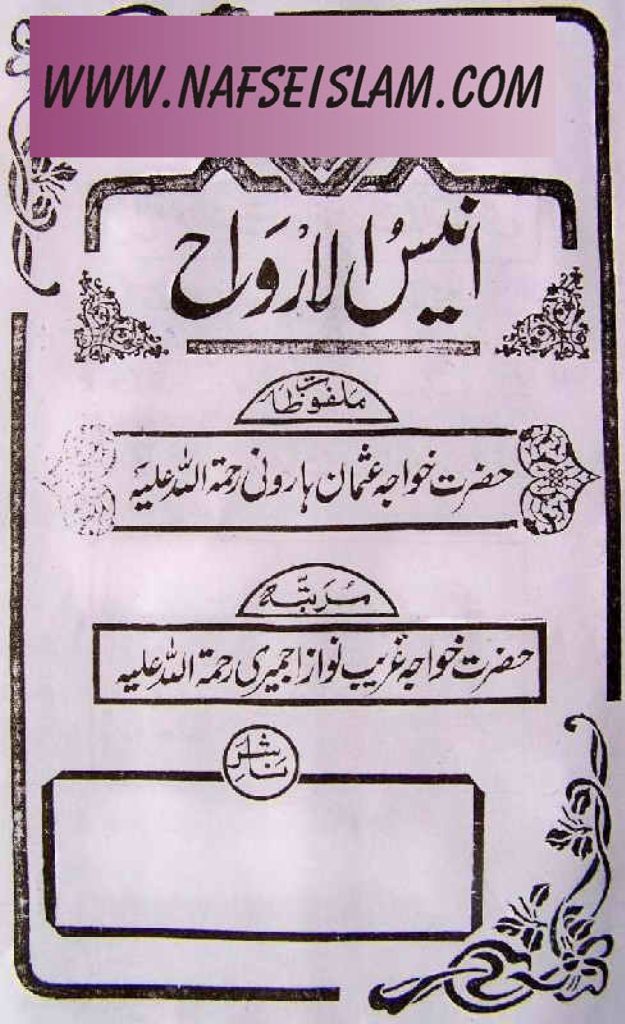 WWW.NAFSEISLAM.COM
انیسُ الارْوَاح
ملفوظات
حضرت خواجہ عثمان ہارونی رحمۃ اللہ علیہ
مُرَتبّہ
حضرت خواجہ غریب نواز اجمیری رحمۃ اللہ علیہ
ناشر